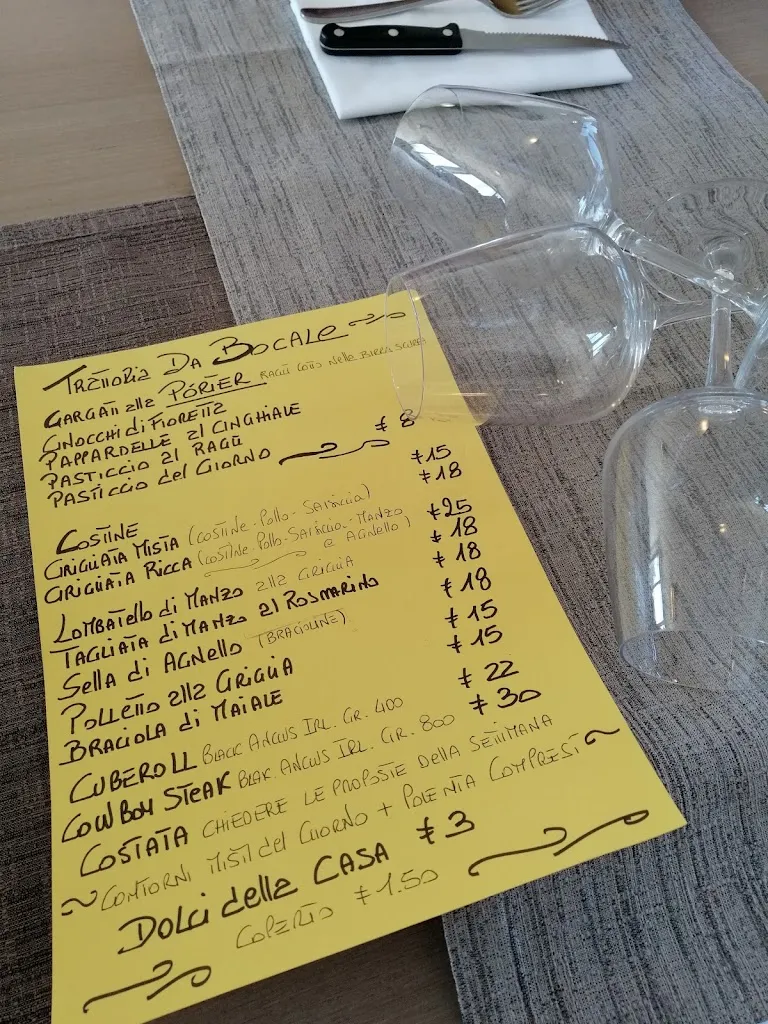 TRATTORIA DA BOCALE
GARGATI alla PORTER RAGÙ COTTO Nella BIRRA SCURA
GNOCCHI di FIORETTA
PAPPARDELLE al CINGHIALE
PASTICCIO al RAGÙ
PASTICCIO del GIORNO € 8
COSTINE € 15
GRIGLIATA MISTA (COSTINE - Pollo - SALSICCIA) € 18
GRIGLIATA RICCA (COSTINE - Pollo - SALSICCIA - MANZO e AGNELLO) € 25
LOMBATELLO di MANZO alla GRIGLIA € 18
TAGLIATA di MANZO al ROSMARINO € 18
Sella di AGNELLO (BRACIOLINE) € 18
POLLETTO alla GRIGLIA € 15
BRACIOLA di MAIALE € 15
CUBEROLL BLACK ANGUS IRL. GR. 400 € 22
COWBOY STEAK BLAK ANGUS IRL. GR. 800 € 30
COSTATA CHIEDERE LE PROPOSTE DELLA SETTIMANA
CONTORNI MISTI del GIORNO + POLENTA COMPRESI
DOLCI della CASA € 3
COPERTO € 1.50